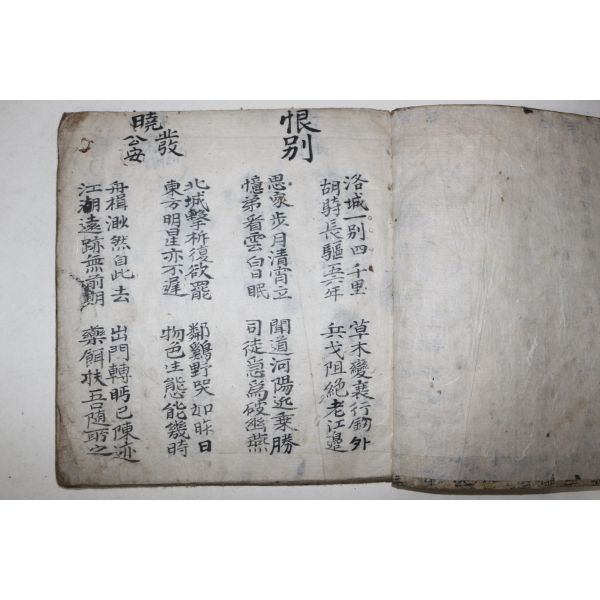 恨别
洛城一別四千里
胡騎長驅五六年
草木變衰行釰外
兵戈阻絕老江邊
思家步月清宵立
憶弟看雲白日眠
聞道河陽近乗勝
司徒急爲破幽燕
曉發公安
北城擊柝復欲罷
東方明星亦不遲
鄰鷄野哭如昨日
物色生態能幾時
舟楫渺然自此去
江湖遠跡無前期
出門轉眄已陳迹
藥餌扶吾隨所之